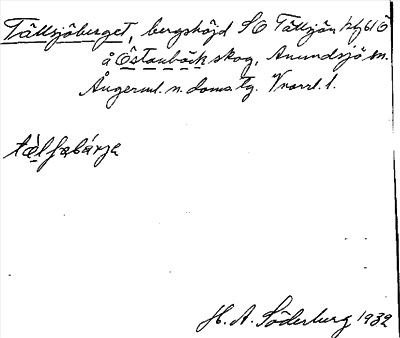 Tällsjöberget, bergshöjd SO Tällsjön
å Östanbäck skog, Anundsjö sn.
Ångerml. n. domstg. Vnorrl. l.
tä̀lfabárja
H. A. Söderberg 1932